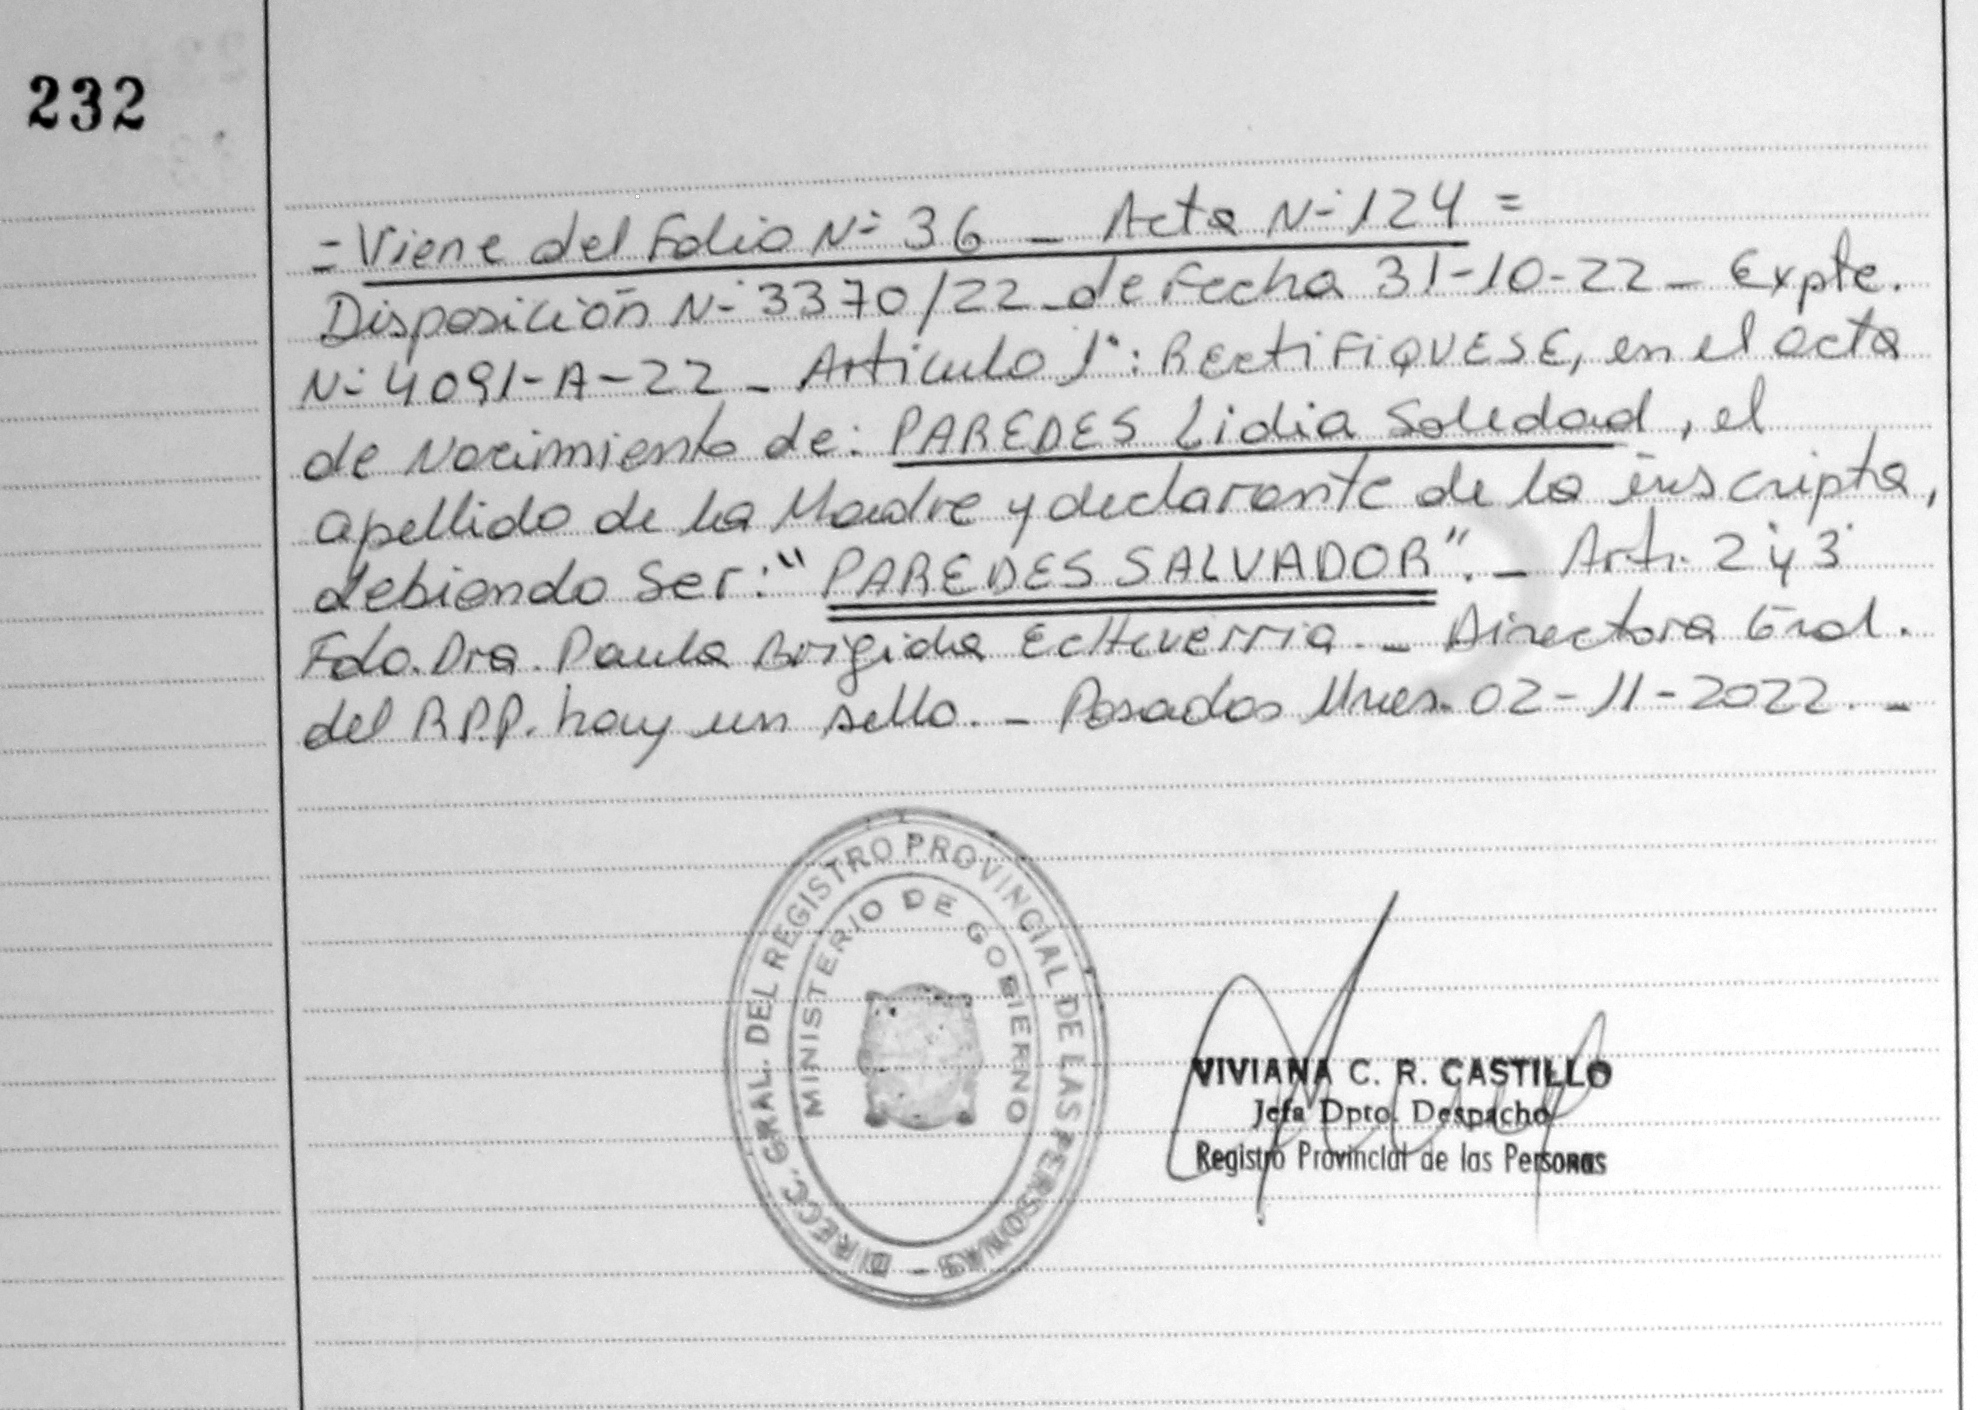 232
= Viene del Folio Nº 36 _ Acta Nº 124 =
Disposición Nº 3370/22_ de Fecha 31-10-22_ Expte.
Nº 4091-A-22 _ Artículo 1°: RECtiFIQUESE, en el acta
de Nacimiento de: PAREDES Lidia Soledad, el
apellido de la Madre y declarante de la inscripta,
debiendo Ser: "PAREDES SALVADOR"._ Art. 2° y 3°
Fdo. Dra. Paula Brigida Echeverria._ Directora Gral.
del R.P.P. hay un sello._ Posadas Mnes. 02-11-2022._
DIRECC. GRAL. DEL REGISTRO PROVINCIAL DE LAS PERSONAS -
MINISTERIO DE GOBIERNO
VIVIANA C. R. CASTILLO
Jefa Dpto. Despacho
Registro Provincial de las Personas